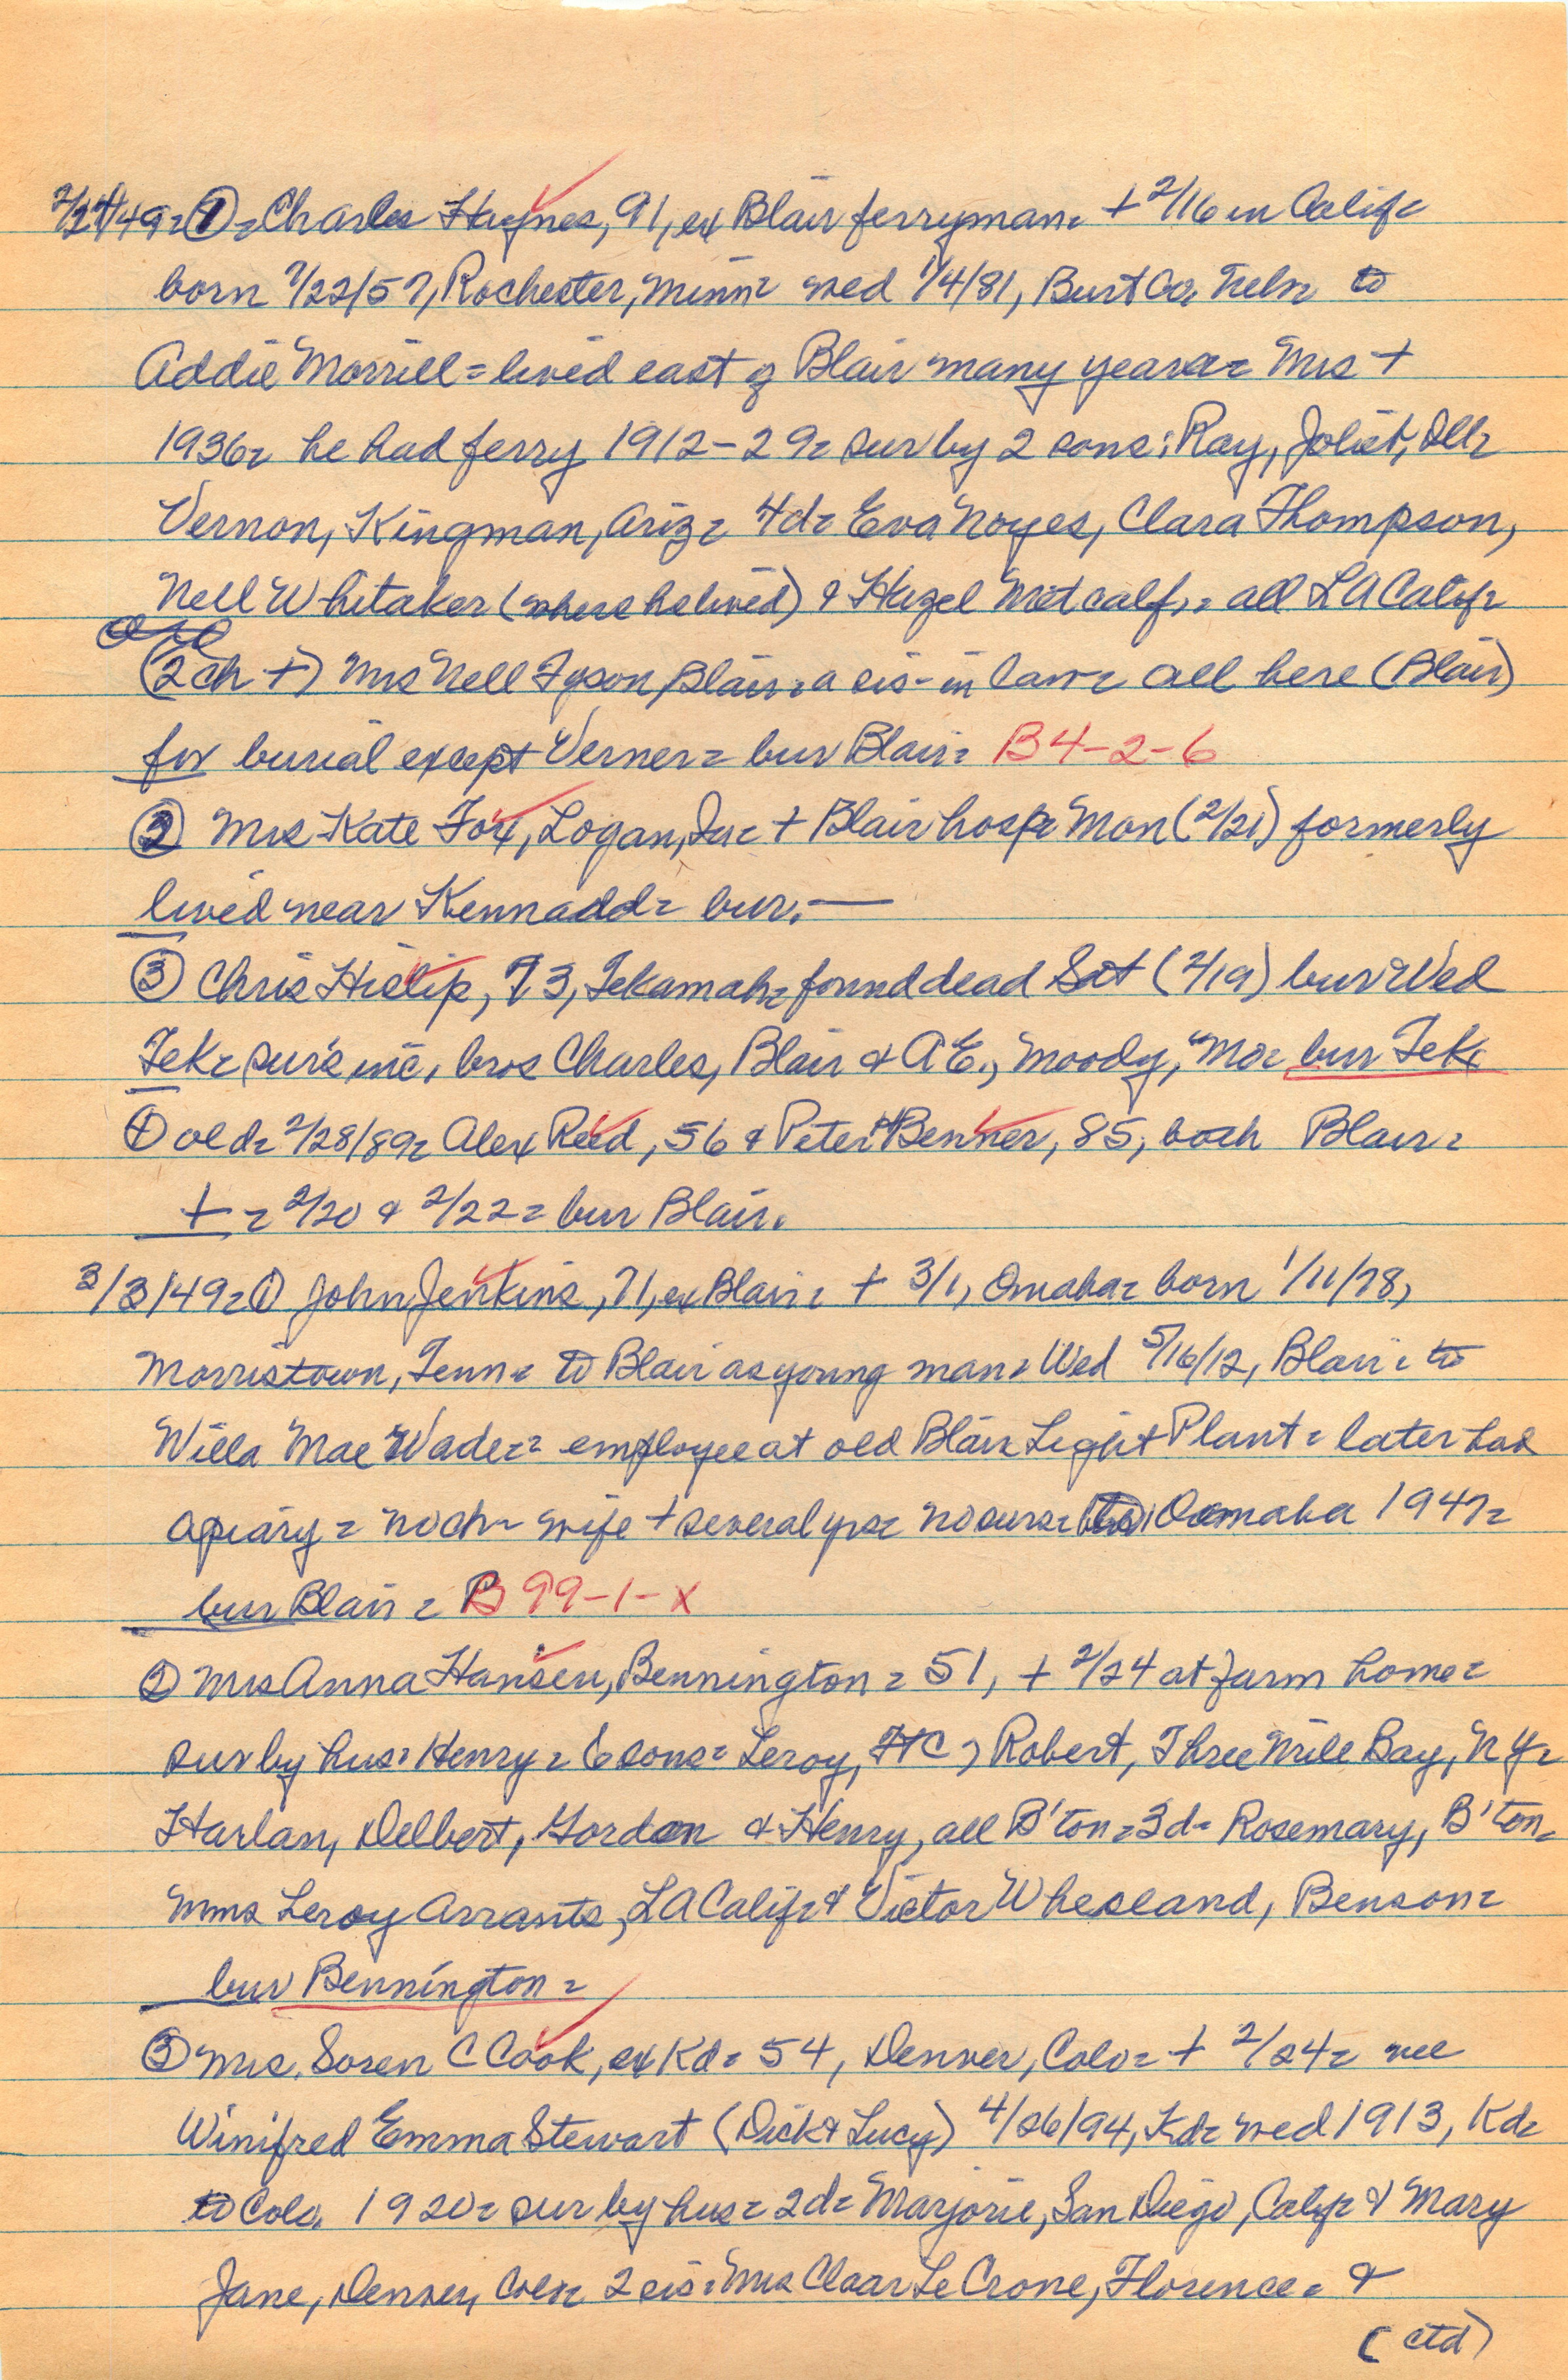 2/24/49= ① = Charles Haynes, 91, ex Blair ferryman= + 2/16 in Calif=
born 7/22/57, Rochester, Minn= wed 1/4/81, Burt Co, Nebr= to
Addie Morrill = lived east of Blair many years= Mrs +
1936= he had ferry 1912-29= sur by 2 sons: Ray, Joliet, Ill=
Vernon, Kingman, Ariz= 4d= Eva Noyes, Clara Thompson,
Nell Whitaker (where he lived) & Hazel Metcalf, = all LA Calif=
(2 ch +) Mrs Nell Tyson, Blair, = a sis-in law= all here (Blair)
for burial except Verner= bur Blair= B4-2-6
② Mrs Kate Fox, Logan, Ia= + Blair hosp= Mon (2/21) formerly
lived near Kennard= bur. —
③ Chris Hislip, 73, Tekamah= found dead Sat (2/19) bur Wed
Tek= surs inc, bros Charles, Blair & A E., Moody, Mo= bur Tek
① old= 2/28/89= Alex Reed, 56 & Peter Benner, 85, both Blair=
+ = 2/20 & 2/22= bur Blair.
3/3/49= ① John Jenkins, 71, ex Blair= + 3/1, Omaha= born 1/11/78,
Morristown, Tenn= to Blair as young man= Wed 5/16/12, Blair= to
Willa Mae Wade= = employee at old Blair Light Plant= later had
apiary = no ch= wife + several yrs= no surs= (to) Omaha 1947=
bur Blair = B 99-1-X
② Mrs Anna Hansen, Bennington= 51, + 2/24 at farm home=
sur by hus= Henry= 6 sons= Leroy, FtC, Robert, Three Mile Bay, N Y=
Harlan, Delbert, Gordon & Henry, all B'ton= 3d= Rosemary, B'ton=
Mms Leroy Arrants, LA Calif= & Victor Wheeland, Benson=
bur Bennington=
③ Mrs. Soren C Cook, ex Kd= 54, Denver, Colo= + 2/24= nee
Winifred Emma Stewart (Dick & Lucy) 4/26/94, Kd= wed 1913, Kd=
to Colo. 1920= sur by hus= 2d= Marjorie, San Diego, Calif= & Mary
Jane, Denver, Colo= 2 sis= Mrs Claar LeCrone, Florence= &
(ctd)